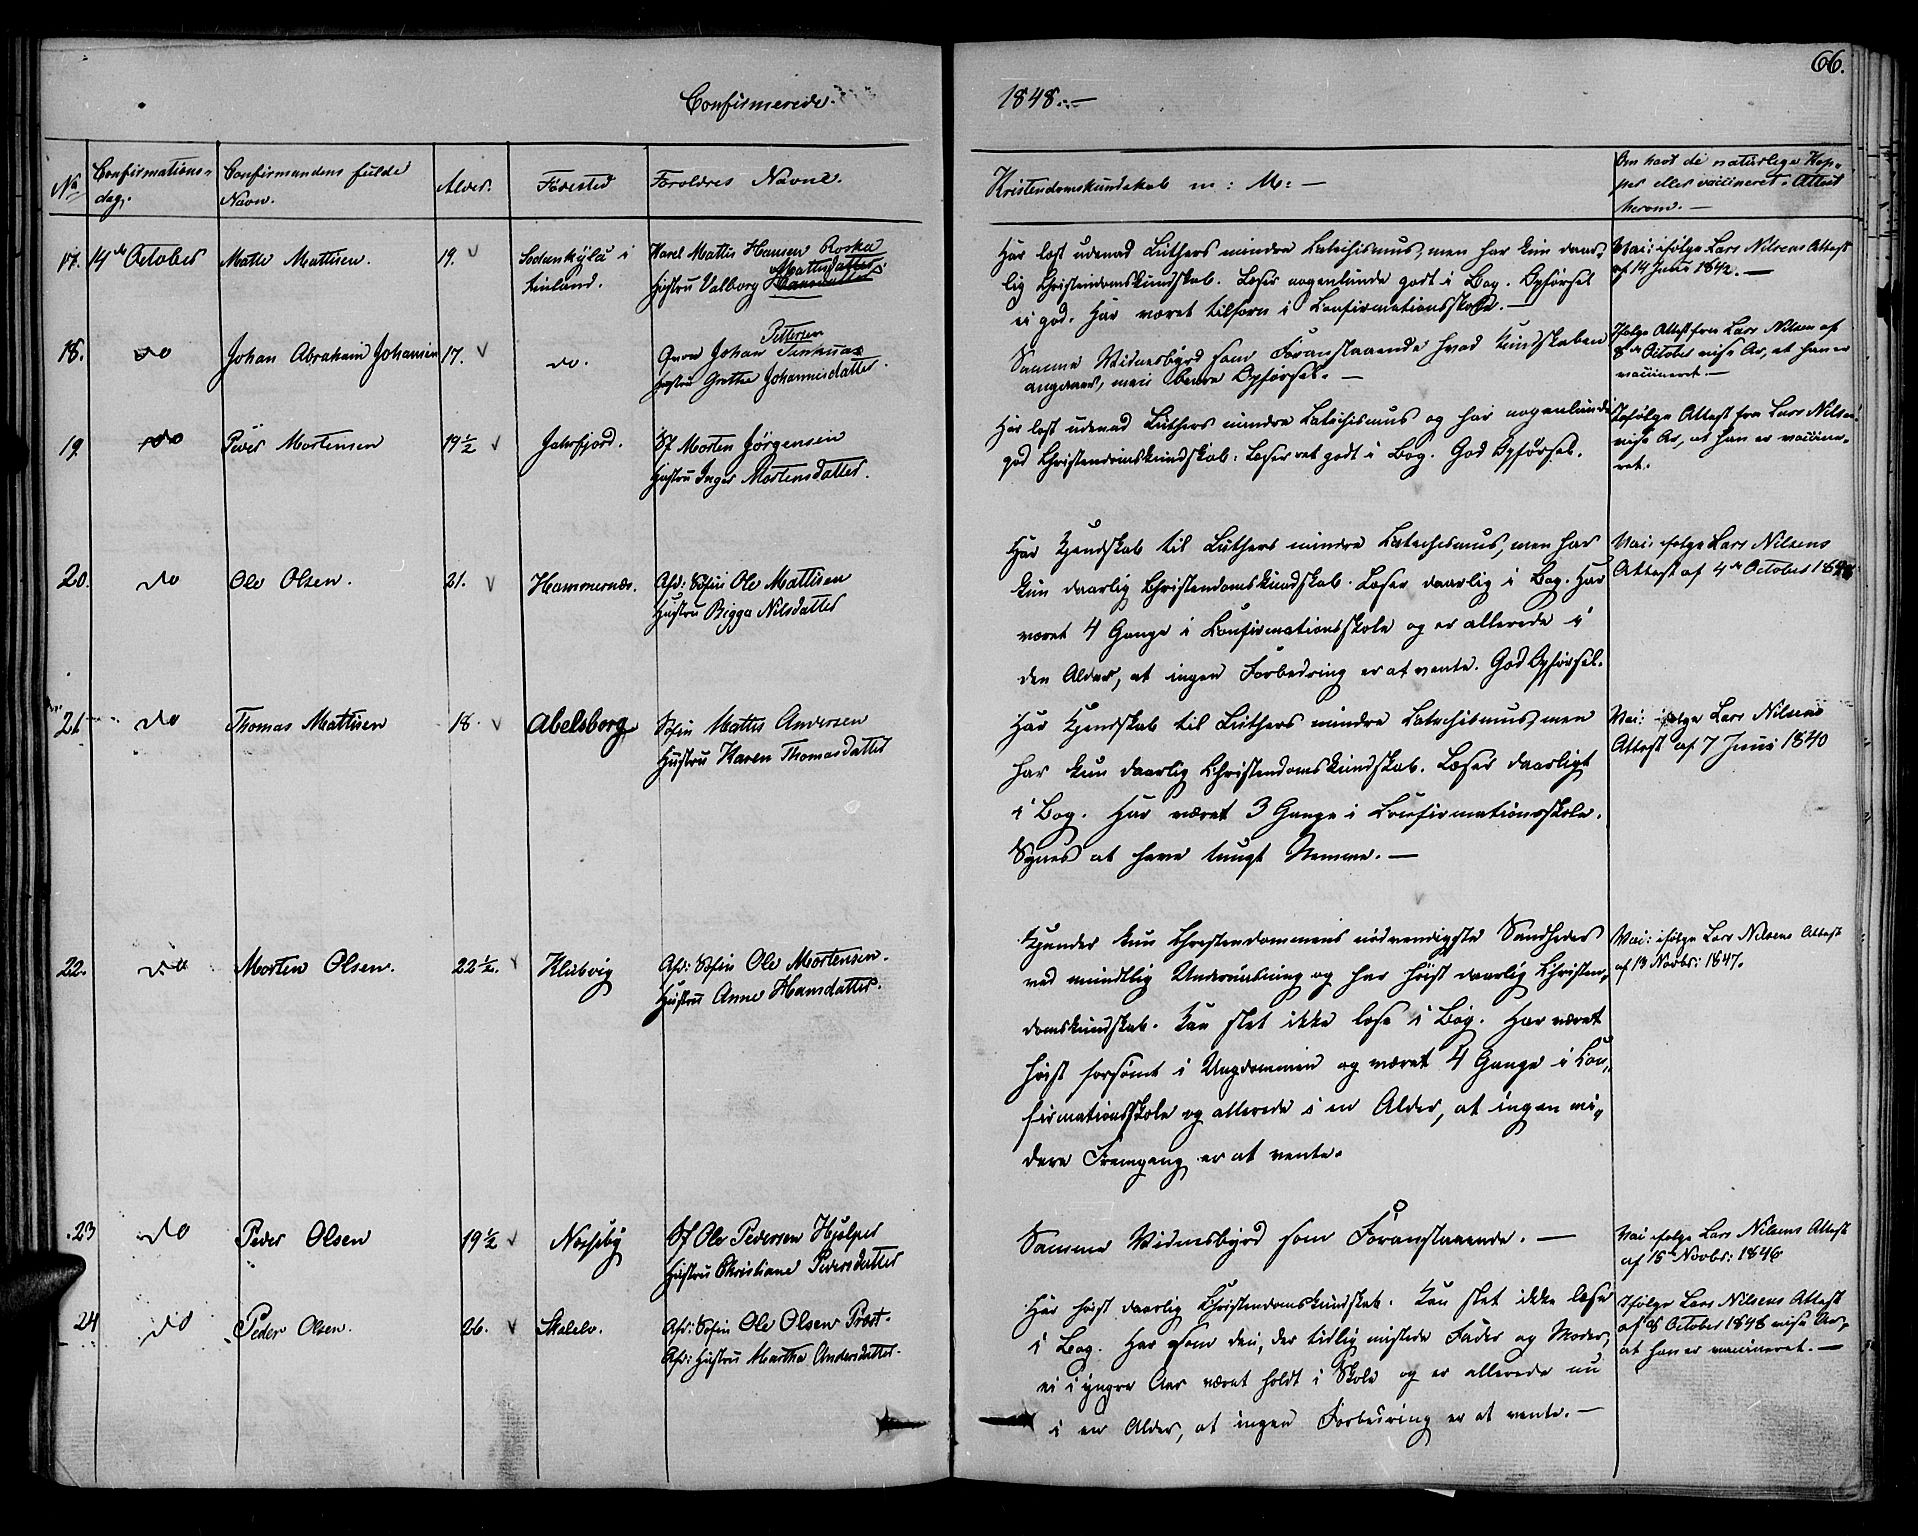 66.
Confirmerede.
1848.—
No
Confirmations-
dag.
Confirmandens fulde
Navn.
Alder.
Födested
Foroldres Navne.
Kristendomskundskab m: M: —
Om havt de naturlige Kop-
per eller vaccineret. Attest
herom. —
17.
14de October
Mattis Mattisen.
19.
Sodankylä i
Finland.
Karel Mattis Hansen Roska
Mattisdatter
Hustru Valborg Hansdatter
Har læst udenad Luthers mindre Katechismus, men har kun daar-
lig Christendomskundskab. Læser nogenlunde godt i Bog. Opförsel
ei god. Har været tilforn i Confirmationsskole. —
Vac: ifølge Lars Nilsens Attest
af 14 Juni 1842. —
18.
do
Johan Abraham Johansen
17.
do.
Pettersen
Johan
Hustru Grethe Johannisdatter.
Samme Vidnesbyrd som Foranstaaende hvad Kundskaben
angaaer, men bedre Opførsel. —
Ifølge Attest fra Lars Nilsen af
8de October vise Ar, at han er
vaccineret. —
19.
do
Peder Mortensen
19½
Jahrfjord.
Sf Morten Jörgensen
Hustru Inger Mortensdatter.
Har læst udenad Luthers mindre Katechismus og har nogenlunde
god Christendomskundskab. Læser ret godt i Bog. God Opførsel.
Ifølge Attest fra Lars Nilsen
vise Ar, at han er vaccine-
ret.
20.
do
Ole Olsen.
21.
Hammernæs.
Afd: Søfin Ole Mattisen
Hustru Bigga Nilsdatter
Har Kjendskab til Luthers mindre Katechismus, men har
kun daarlig Christendomskundskab. Læser daarlig i Bog. Har
været 4 Gange i Confirmationsskole og er allerede i
den Alder, at ingen Forbedring er at vente. God Opførsel.
Vac: ifølge Lars Nilsens
Attest af 4de October
21
do
Thomas Mattisen
18.
Abelsborg
Søfin Mattis Andersen
Hustru Karen Thomasdatter
Har Kjendskab til Luthers mindre Katechismus, men
har kun daarlig Christendomskundskab. Læser daarligt
i Bog. Har været 3 Gange i Confirmationsskole.
Synes at have tungt Nemme. —
Vac: ifølge Lars Nilsens
Attest af 7 Juni 1840
22.
do
Morten Olsen.
22½.
Klubvig
Afd: Søfin Ole Mortensen.
Hustru Anne Hansdatter.
Kjender kun Christendommens nödvendigste Sandheder
ved mundtlig Underviisning og har höist daarlig Christen-
domskundskab. Kan slet ikke læse i Bog. Har været
höist forsömt i Ungdommen og været 4 Gange i Con-
firmationsskole og allerede i en Alder, at ingen vi-
dere Fremgang er at vente.
Vac: ifølge Lars Nilsens Attest
af 13 Novbr: 1847.
23
do
Peder Olsen
19½
Næsseby
Sf Ole Pedersen Hjelper
Hustru Christiane Pedersdatter
Samme Vidnesbyrd som Foranstaaende. —
Vac ifølge Lars Nilsens Attest
af 15 Novbr: 1846
24
do
Peder Olsen.
26.
Skalelv.
Afd: Søfin Ole Olsen Prost.
Afd: Hustru Marthe Andersdatter.
Har höist daarlig Christendomskundskab. Kan slet ikke læse
i Bog. Har som den, der tidlig mistede Fader og Moder,
ei i yngre Aar været holdt i Skole og er allerede nu
i en Alder, at ingen Forbedring er at vente. —
Ifølge Lars Nilsens Attest
af 8 October 1848 vise Ar,
at han er vaccineret. —